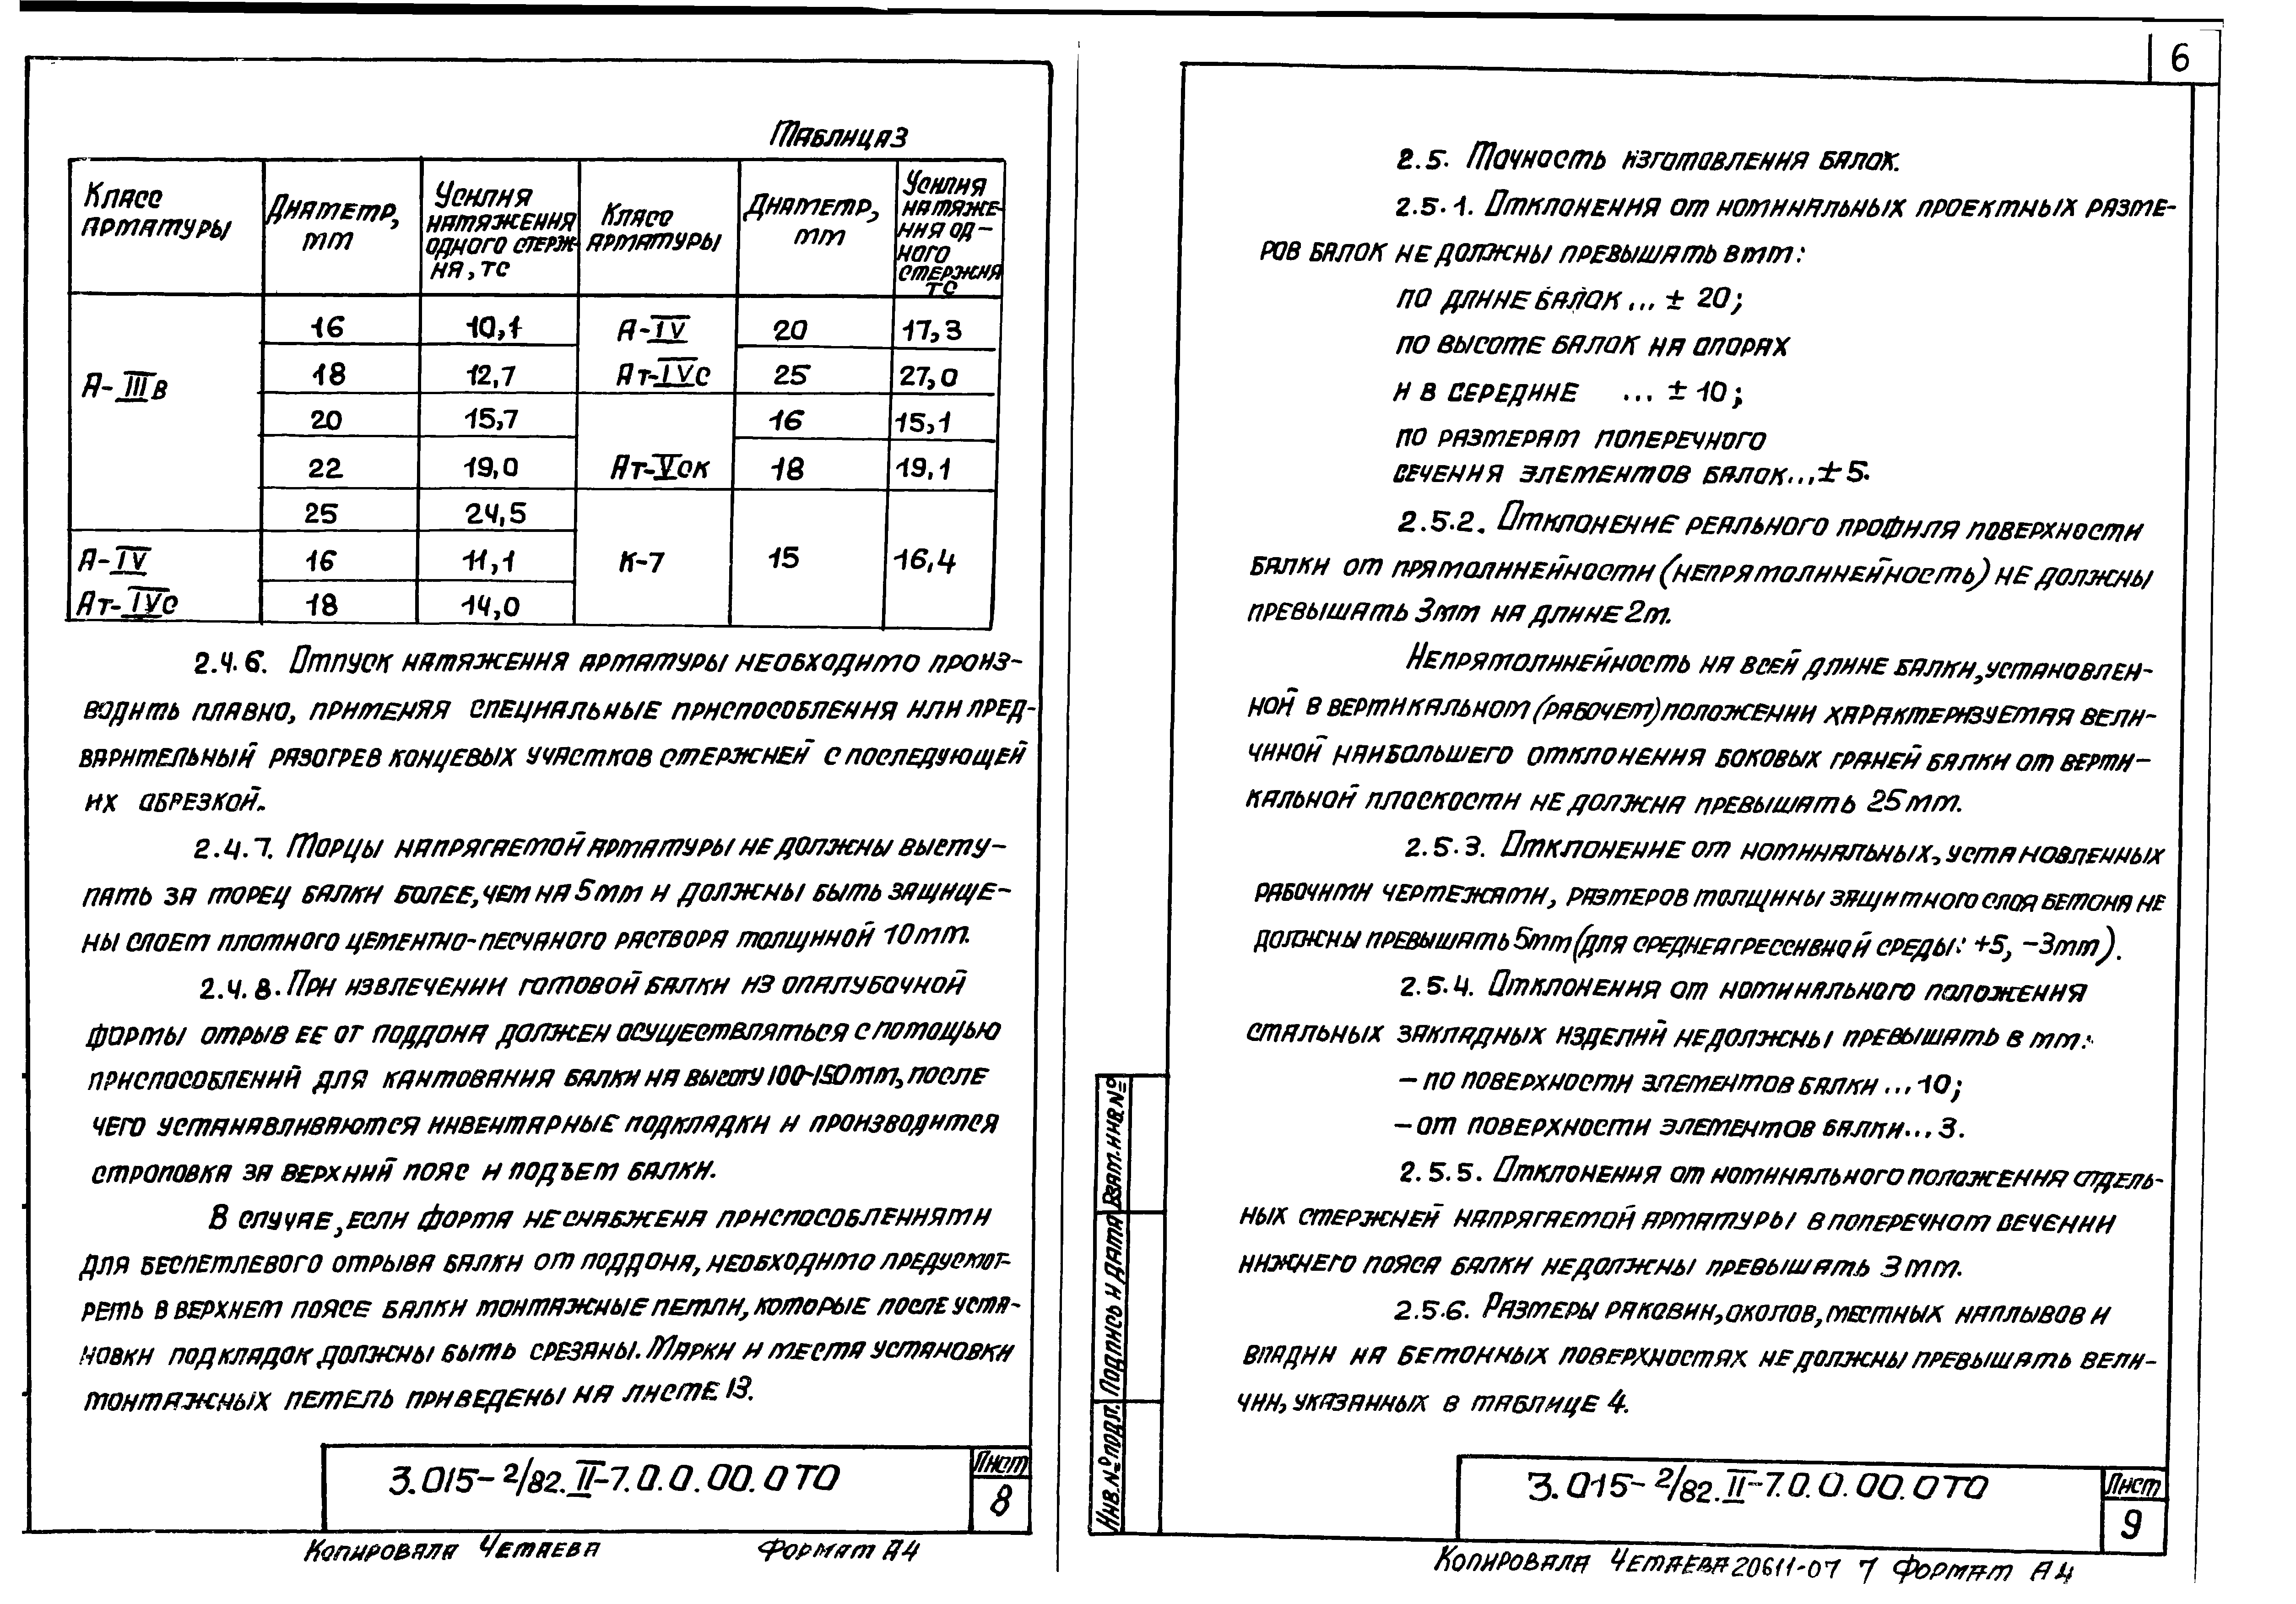 6
Таблица 3
Класс арматуры
Диаметр, мм
Усилия натяжения одного стержня, тс
Класс арматуры
Диаметр, мм
Усилия натяжения одного стержня тс
А-IIIв
16 10,1
18 12,7
20 15,7
22 19,0
25 24,5
А-IV
Ат-IVс
16 11,1
18 14,0
А-IV
Ат-IVс
20 17,3
25 27,0
Ат-Vск
16 15,1
18 19,1
К-7 15 16,4
2.4.6. Отпуск натяжения арматуры необходимо произ-
водить плавно, применяя специальные приспособления или пред-
варительный разогрев концевых участков стержней с последующей
их обрезкой.
2.4.7. Торцы напрягаемой арматуры не должны высту-
пать за торец балки более, чем на 5мм и должны быть защище-
ны слоем плотного цементно-песчаного раствора толщиной 10мм.
2.4.8. При извлечении готовой балки из опалубочной
формы отрыв ее от поддона должен осуществляться с помощью
приспособлений для кантования балки на высоту 100-150мм, после
чего устанавливаются инвентарные подкладки и производится
строповка за верхний пояс и подъем балки.
В случае, если форма не снабжена приспособлениями
для беспетлевого отрыва балки от поддона, необходимо предусмот-
реть в верхнем поясе балки монтажные петли, которые после уста-
новки подкладок должны быть срезаны. Марки и места установки
монтажных петель приведены на листе 13.
3.015-2/82.II-7.0.0.00.0ТО
Лист
8
Копировала Четаева Формат А4
2.5. Точность изготовления балок.
2.5.1. Отклонения от номинальных проектных разме-
ров балок не должны превышать в мм:
по длине балок ... ± 20;
по высоте балок на опорах
и в середине ... ± 10;
по размерам поперечного
сечения элементов балок ... ± 5.
2.5.2. Отклонение реального профиля поверхности
балки от прямолинейности (непрямолинейность) не должны
превышать 3мм на длине 2м.
Непрямолинейность на всей длине балки, установлен-
ной в вертикальном (рабочем) положении характеризуемая вели-
чиной наибольшего отклонения боковых граней балки от верти-
кальной плоскости не должна превышать 25мм.
2.5.3. Отклонение от номинальных, установленных
рабочими чертежами, размеров толщины защитного слоя бетона не
должны превышать 5мм (для среднеагрессивной среды: +5, -3мм).
2.5.4. Отклонения от номинального положения
стальных закладных изделий не должны превышать в мм:
- по поверхности элементов балки ... 10;
- от поверхности элементов балки ... 3.
2.5.5. Отклонения от номинального положения отдель-
ных стержней напрягаемой арматуры в поперечном сечении
нижнего пояса балки не должны превышать 3мм.
2.5.6. Размеры раковин, околов, местных наплывов и
впадин на бетонных поверхностях не должны превышать вели-
чин, указанных в таблице 4.
Взам.инв.№
Подпись и дата
Инв.№ подл.
3.015-2/82.II-7.0.0.00.0ТО
Лист
9
Копировала Четаева 20611-07 7 Формат А4